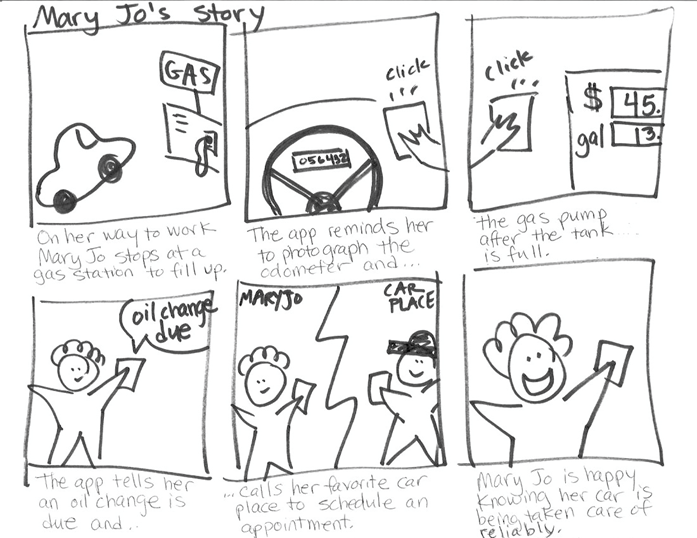 Mary Jo's Story
GAS
On her way to work
Mary Jo stops at a
gas station to fill up.
click
056492
The app reminds her
to photograph the
odometer and...
click
$ 45.
gal 13.
the gas pump
after the tank...
is full.
oil change
due
The app tells her
an oil change is
due and...
MARY JO
CAR
PLACE
...calls her favorite car
place to schedule an
appointment.
Mary Jo is happy
knowing her car is
being taken care of
reliably.